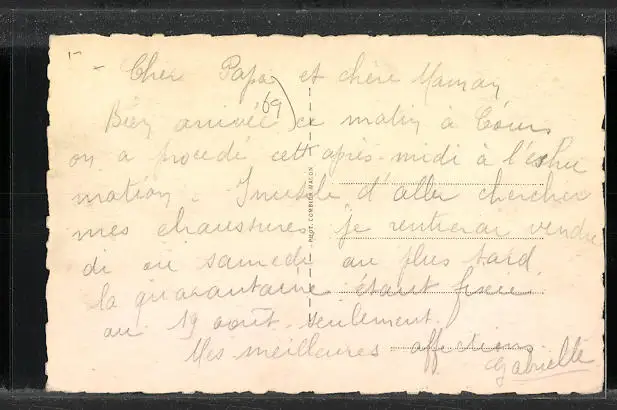 Cher Papa et chère Maman
69
Bien arrivée ce matin à Cours
on a procédé cett après-midi à l'exhu
mation. Inutile d'aller chercher
mes chaussures je rentrerai vendre
di ou samedi au plus tard,
la quarantaine étant fixée
au 19 août seulement.
Mes meilleures affections
Gabrielle
PHOT. COMBIER MACON